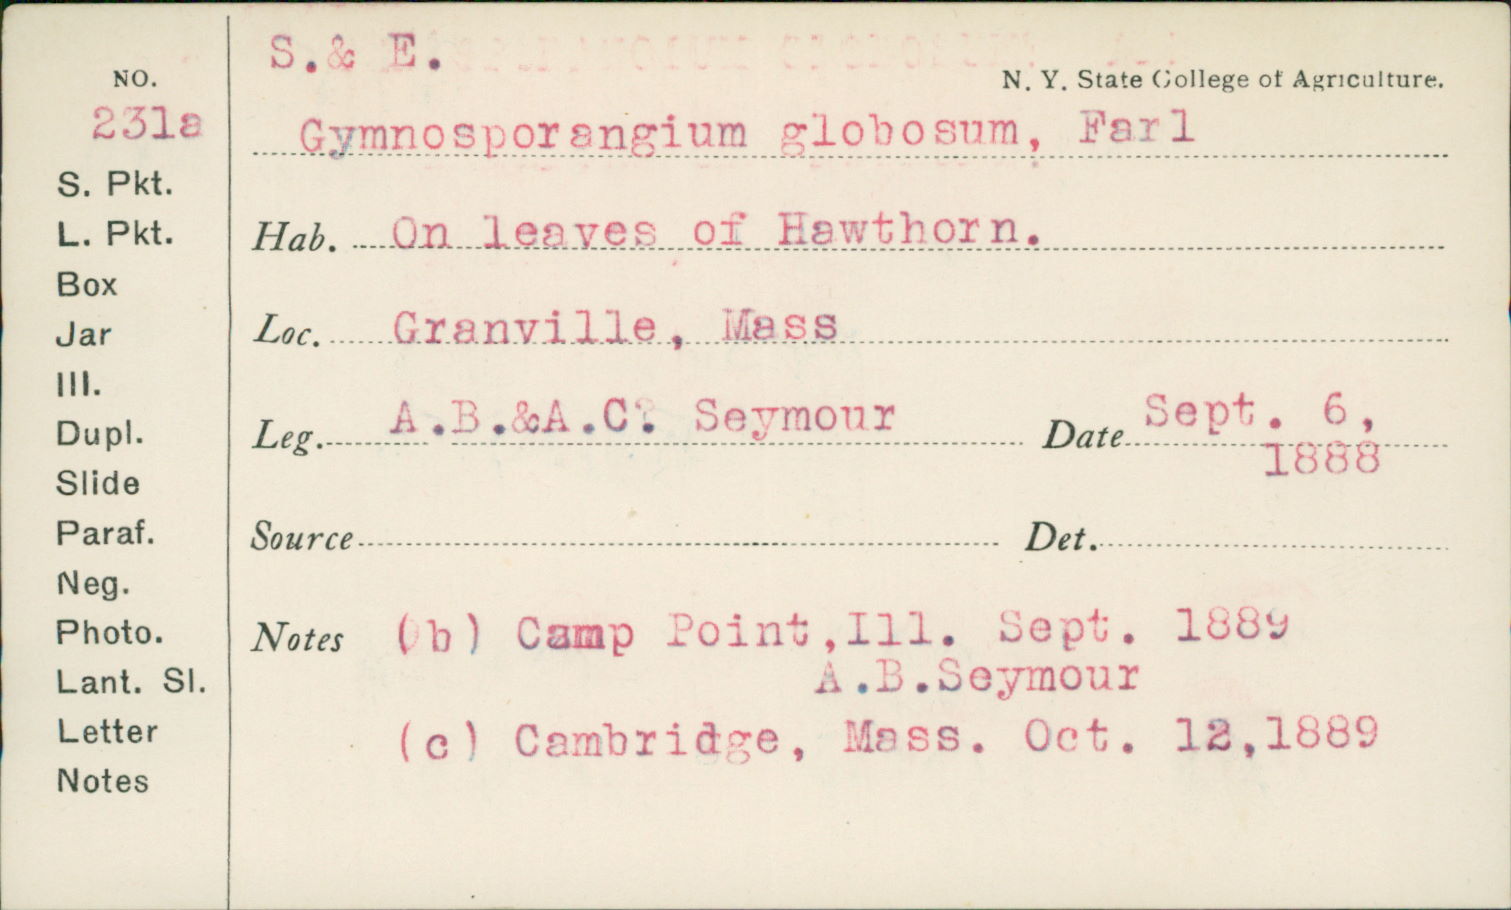 S.& E.
N. Y. State College of Agriculture.
NO.
231a
Gymnosporangium globosum, Farl
S. Pkt.
L. Pkt.
Hab. On leaves of Hawthorn.
Box
Jar
Loc. Granville, Mass
Ill.
Dupl.
Leg. A.B.&A.C. Seymour Date Sept. 6,
1888
Slide
Paraf.
Source Det.
Neg.
Photo.
Notes (b) Camp Point,Ill. Sept. 1889
Lant. Sl.
A.B.Seymour
Letter
(c) Cambridge, Mass. Oct. 12,1889
Notes